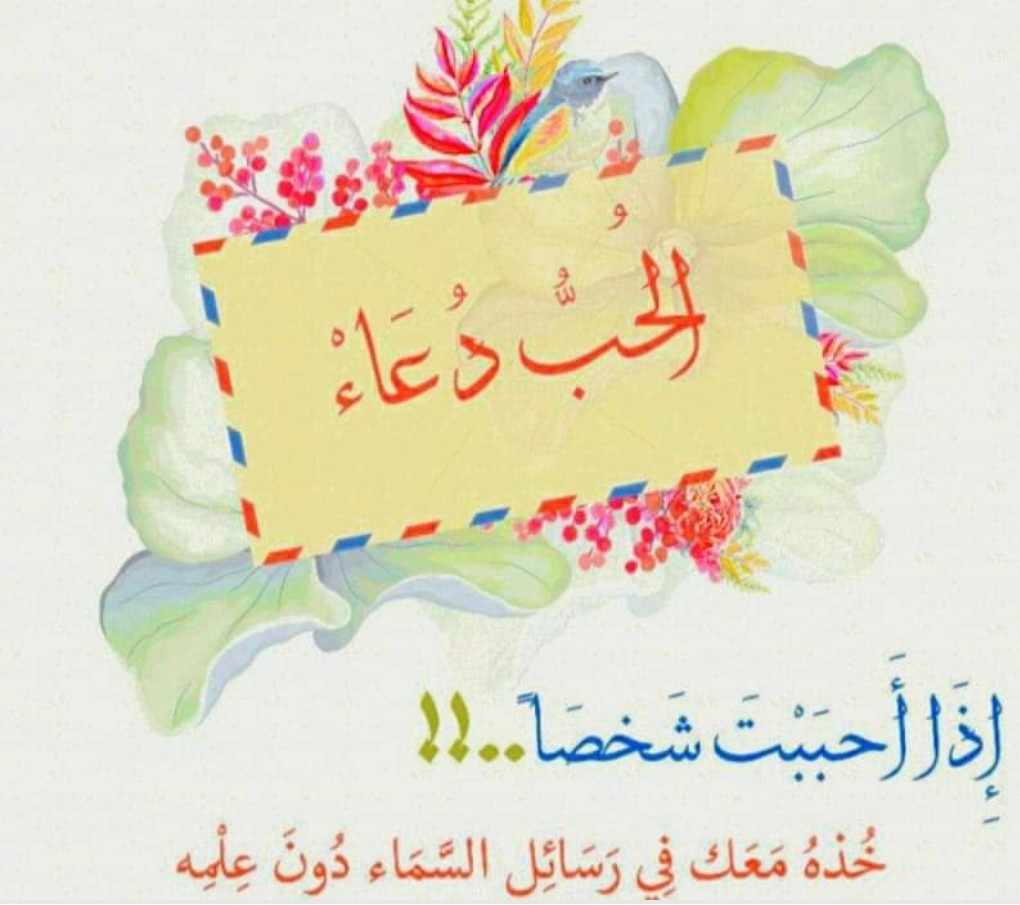 الحُبُّ دُعَاءْ
إِذَا أَحبَبْتَ شَخصَاً..!!
خُذهُ مَعَك فِي رَسَائِل السَّمَاء دُونَ عِلْمِه